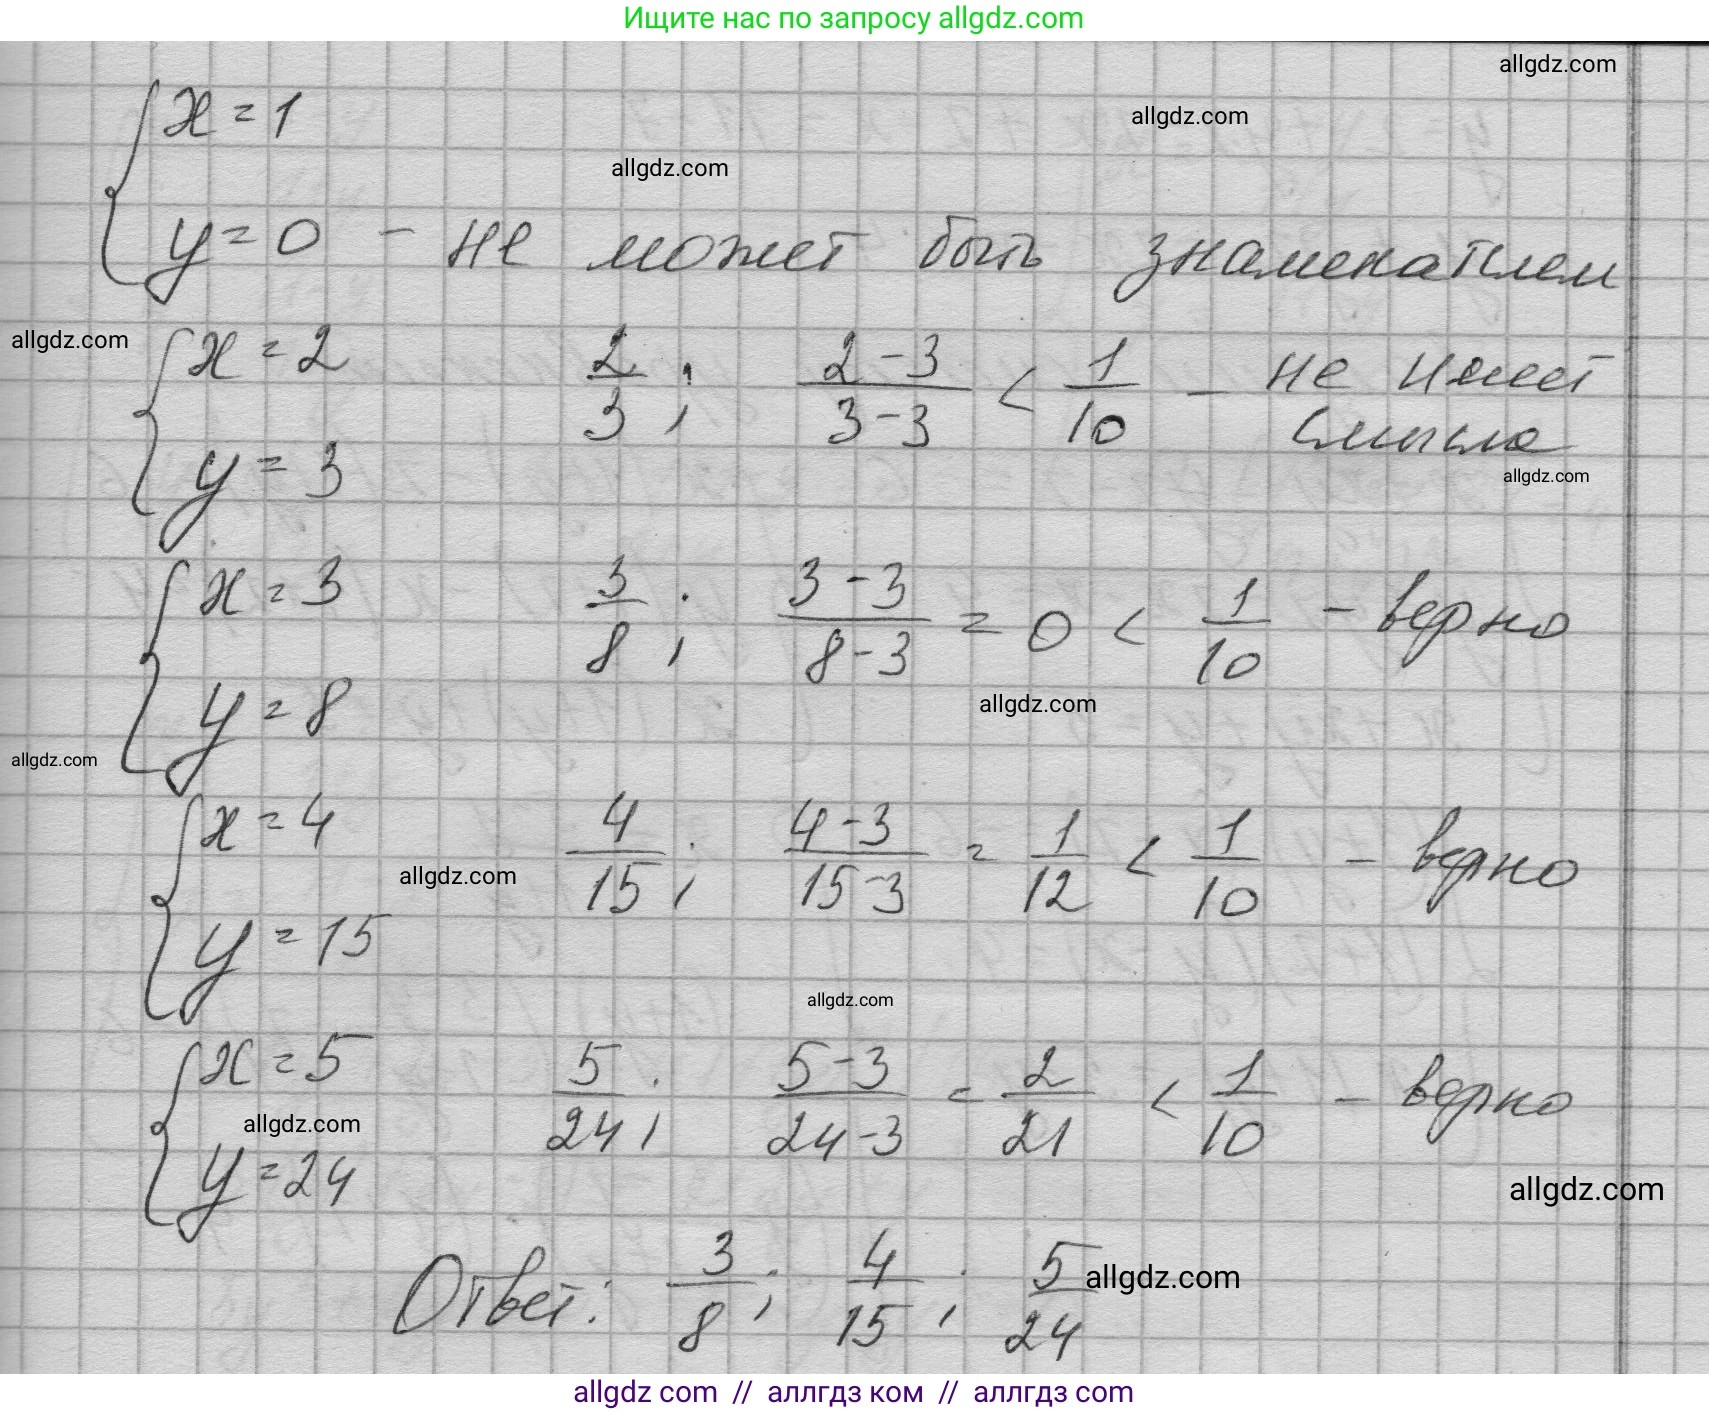 Ищите нас по запросу allgdz.com
allgdz.com
x = 1
allgdz.com
allgdz.com
y = 0 - не может быть знаменателем
allgdz.com
x = 2 2/3; (2-3)/(3-3) < 1/10 - не имеет
смысла
y = 3
allgdz.com
x = 3 3/8; (3-3)/(8-3) = 0 < 1/10 - верно
y = 8
allgdz.com
allgdz.com
x = 4 4/15; (4-3)/(15-3) = 1/12 < 1/10 - верно
allgdz.com
y = 15
allgdz.com
x = 5 5/24; (5-3)/(24-3) = 2/21 < 1/10 - верно
allgdz.com
y = 24
allgdz.com
Ответ: 3/8; 4/15; 5/24
allgdz.com
allgdz com // аллгдз ком // аллгдз com